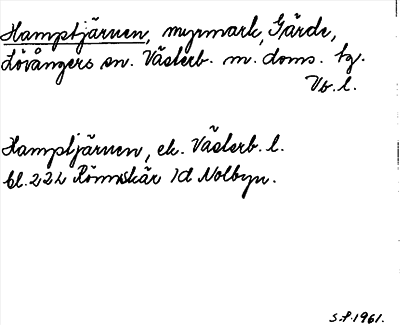 Hamptjärnen, myrmark, Gärde,
Lövångers sn. Västerb. m. doms. tg.
Vb. l.
Hamptjärnen, ek. Västerb. l.
bl. 22 L Rönnskär 1d Nolbyn.
S.f. 1961.